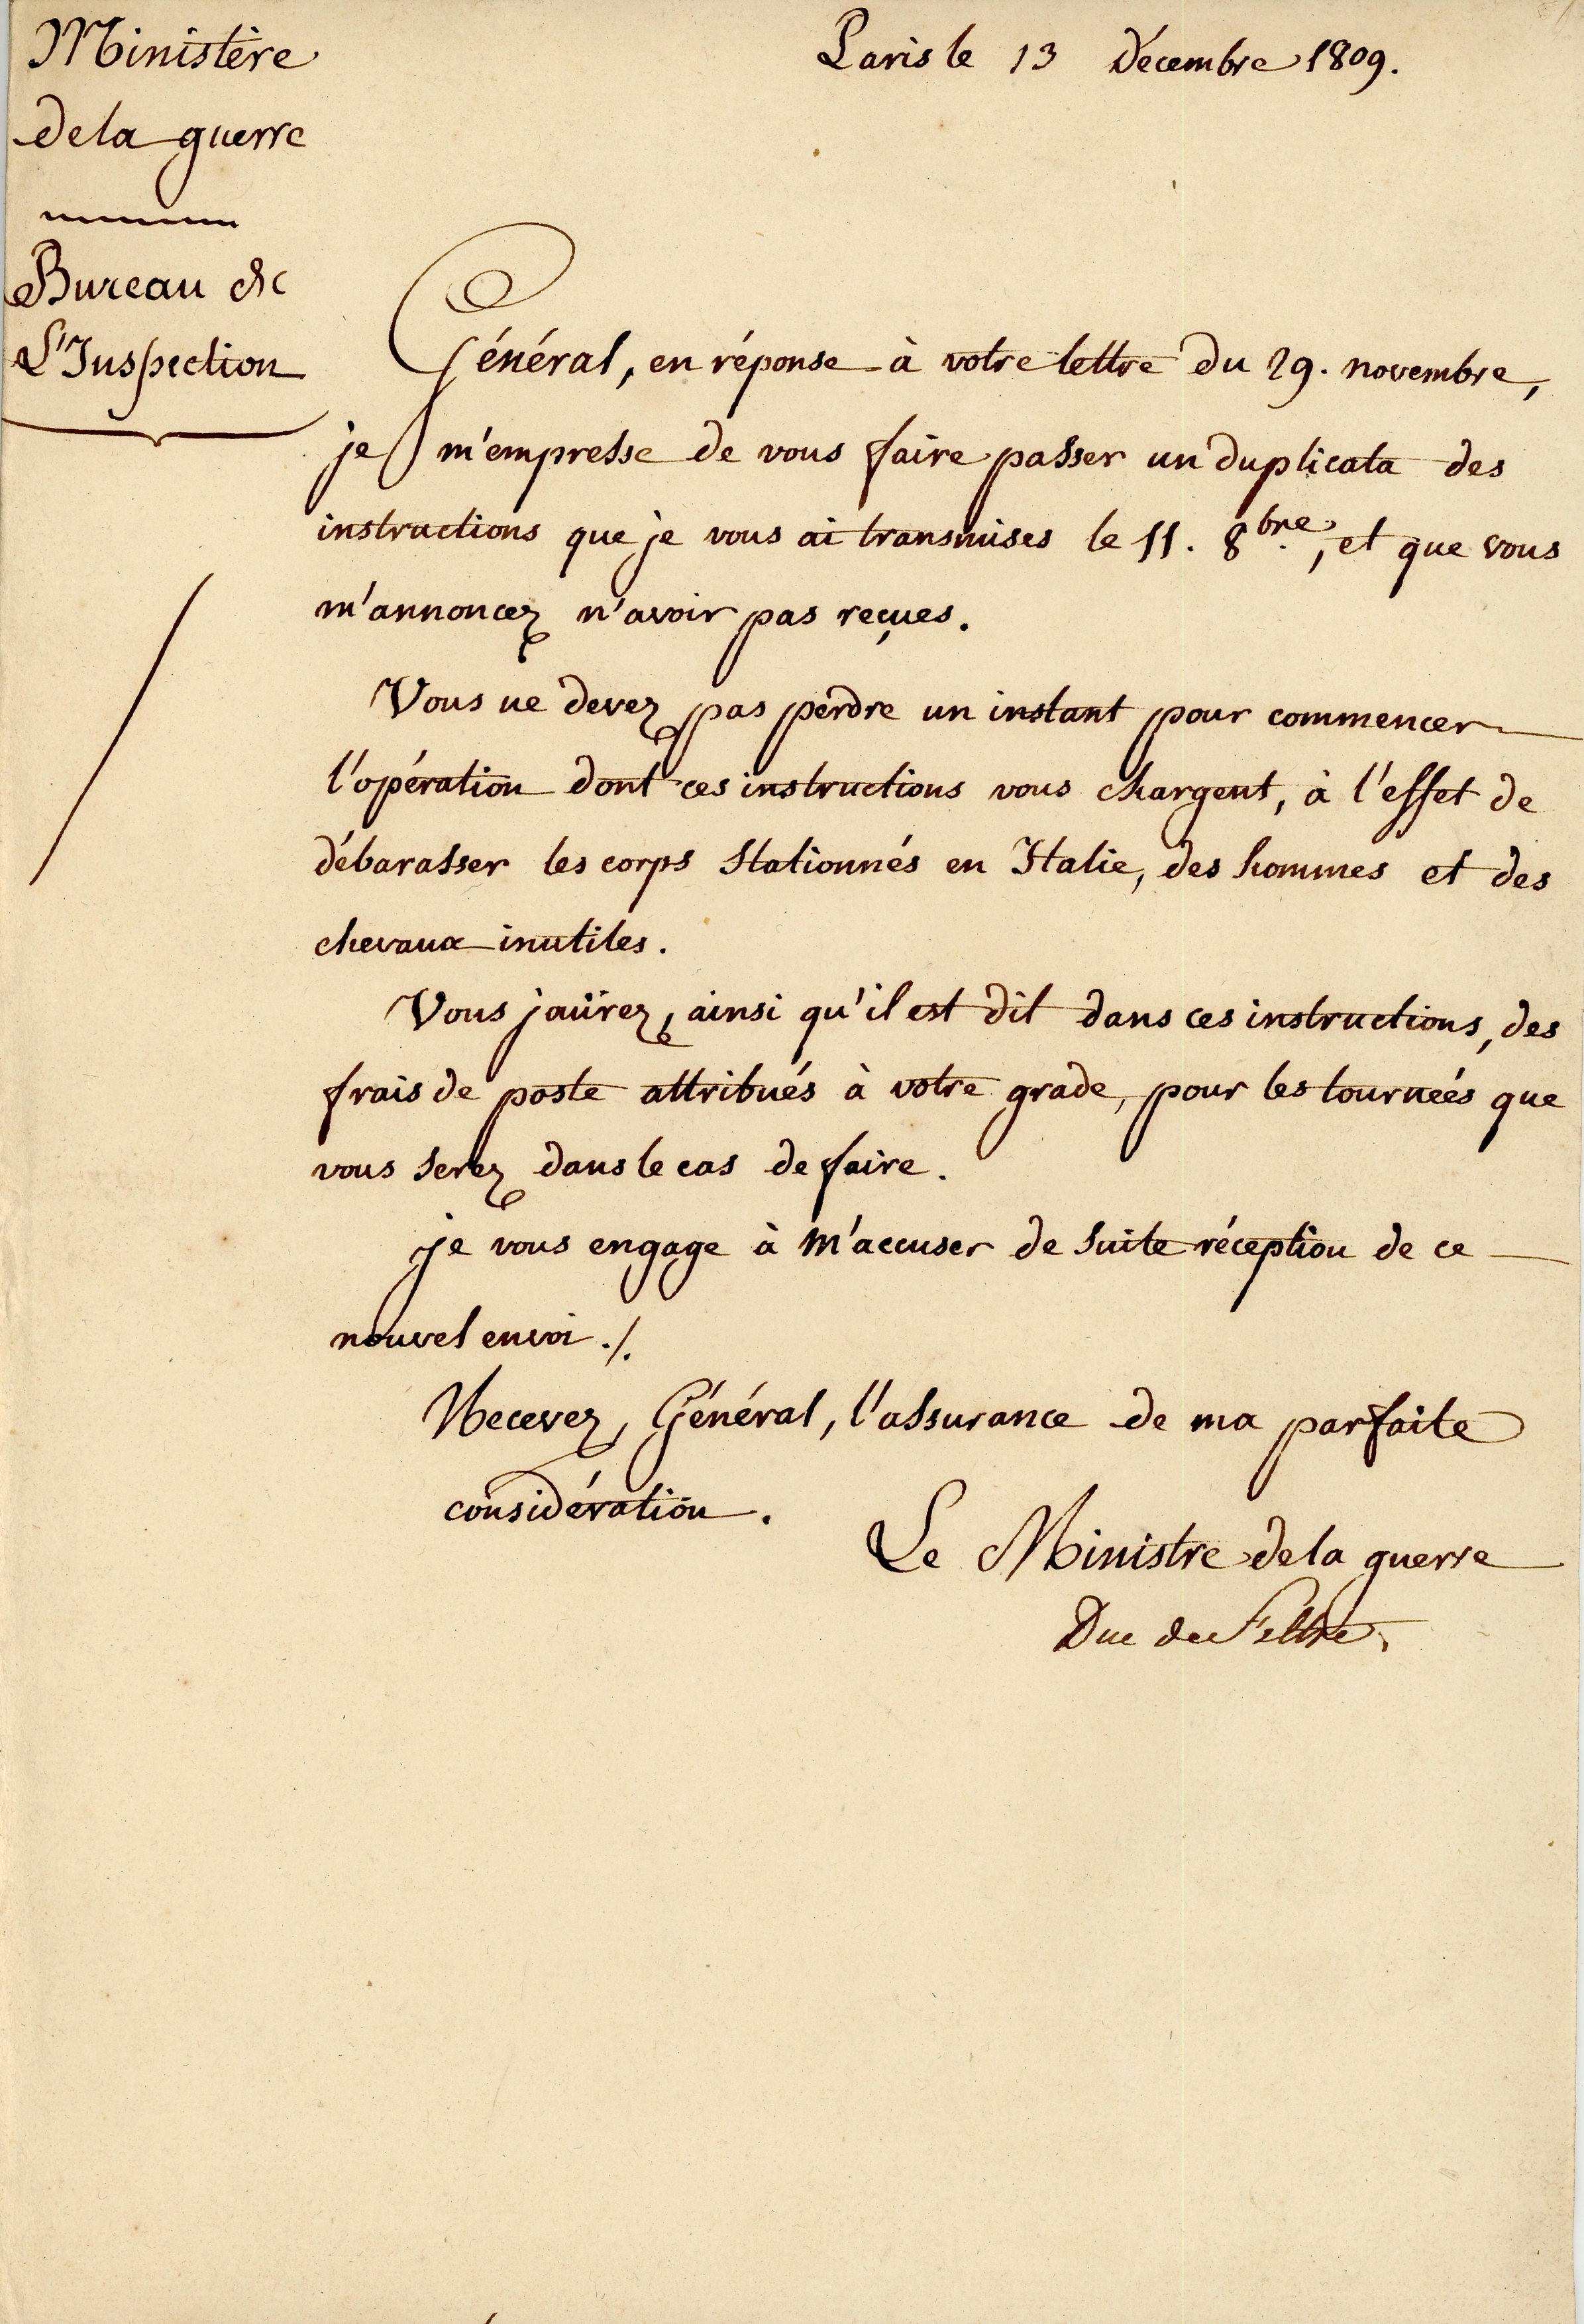 Ministère
de la guerre
Bureau de
L'Inspection
Paris le 13 Décembre 1809.
Général, en réponse à votre lettre du 29. novembre,
je m'empresse de vous faire passer un duplicata des
instructions que je vous ai transmises le 11. 8bre., et que vous
m'annoncez n'avoir pas reçues.
Vous ne devez pas perdre un instant pour commencer
l'opération dont ces instructions vous chargent, à l'effet de
débarasser les corps stationnés en Italie, des hommes et des
chevaux inutiles.
Vous joüirez, ainsi qu'il est dit dans ces instructions, des
frais de poste attribués à votre grade, pour les tournées que
vous serez dans le cas de faire.
je vous engage à m'accuser de suite réception de ce
nouvel envoi ./.
Recevez, Général, l'assurance de ma parfaite
considération.
Le Ministre de la guerre
Duc de Feltre